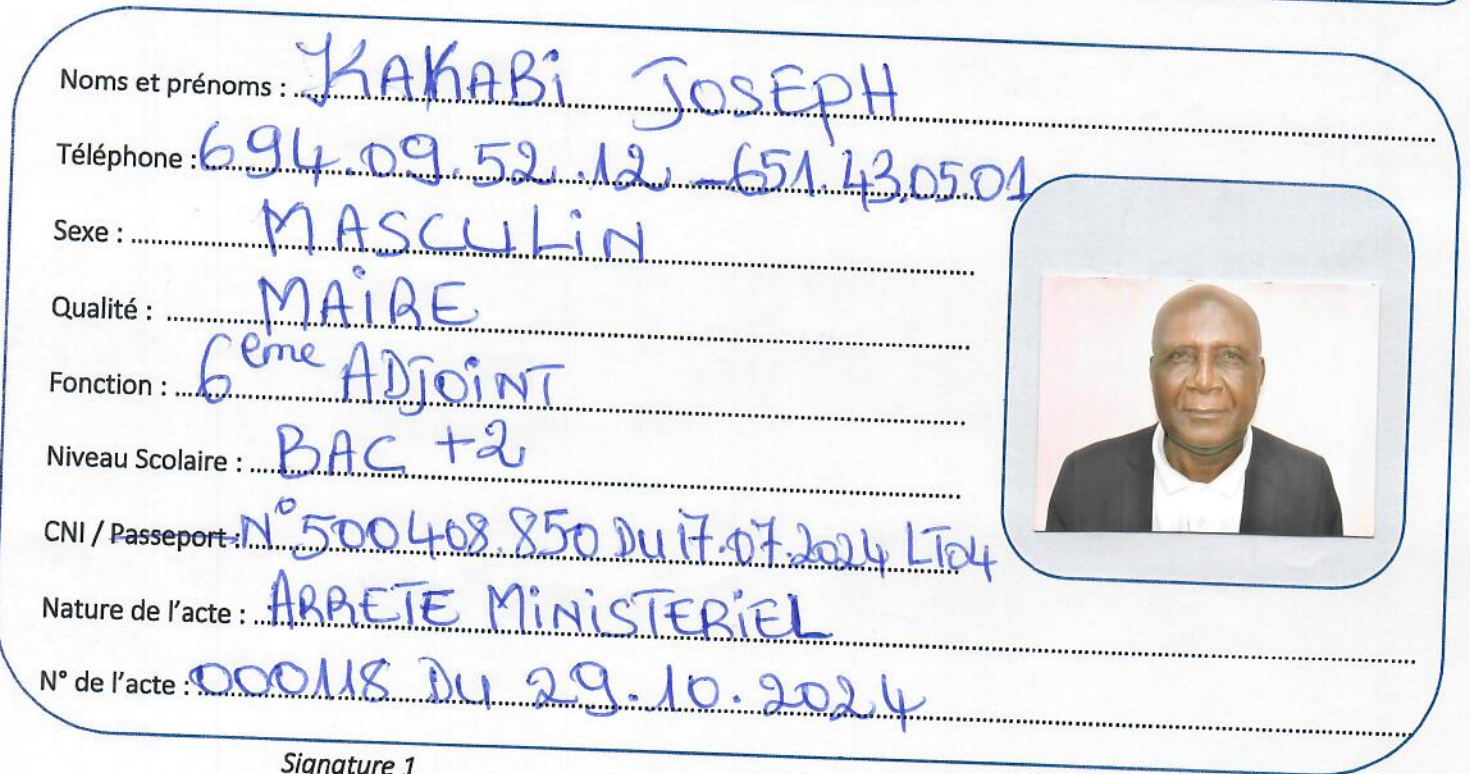 Noms et prénoms : KAKABi JOSEPH
Téléphone : 694.09.52.12 - 651.43.05.01
Sexe : MASCULiN
Qualité : MAiRE
Fonction : 6eme ADJOiNT
Niveau Scolaire : BAC +2
CNI / Passeport : N° 500408.850 DU 17.07.2024 LT04
Nature de l'acte : ARRETE MiNiSTERiEL
N° de l'acte : 000118 DU 29.10.2024
Signature 1